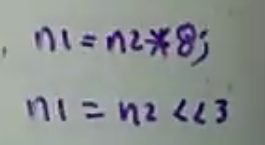 n1 = n2*8;
n1 = n2 <<3